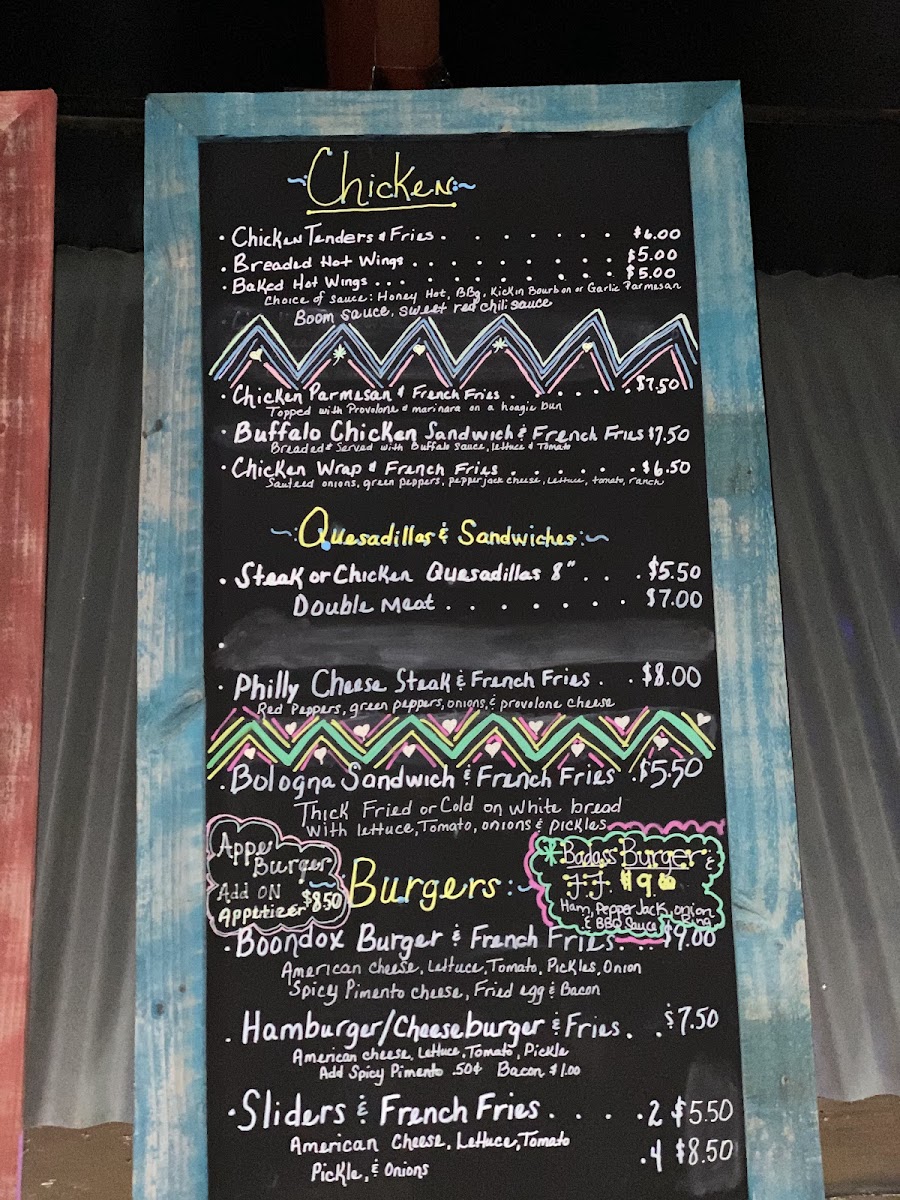 Chicken
• Chicken Tenders & Fries . . . . . . . $6.00
• Breaded Hot Wings . . . . . . . . . . . $5.00
• Baked Hot Wings . . . . . . . . . . . . $5.00
Choice of sauce: Honey Hot, BBq, Kickin Bourbon or Garlic Parmesan
Boom sauce, sweet red chili sauce
• Chicken Parmesan & French Fries . . . . . . $7.50
Topped with Provolone & marinara on a hoagie bun
• Buffalo Chicken Sandwich & French Fries $7.50
Breaded & Served with Buffalo sauce, lettuce & Tomato
• Chicken Wrap & French Fries . . . . . . . $6.50
Sauteed onions, green peppers, pepperjack cheese, Lettuce, tomato, ranch
Quesadillas & Sandwiches
• Steak or Chicken Quesadillas 8" . . . $5.50
Double Meat . . . . . . . $7.00
•
• Philly Cheese Steak & French Fries . . $8.00
Red Peppers, green peppers, onions, & provolone cheese
• Bologna Sandwich & French Fries . $5.50
Thick Fried or Cold on white bread
with lettuce, Tomato, onions & pickles
Burger
Add ON
Appetizer $8.50
Burgers
*Badass Burger &
FF
Ham, Pepper Jack, onion Ring
& BBQ Sauce
• Boondox Burger & French Fries . . $9.00
American cheese, Lettuce, Tomato, Pickles, Onion
Spicy Pimento cheese, Fried egg & Bacon
• Hamburger/Cheeseburger & Fries . . $7.50
American cheese, Lettuce, Tomato, Pickle
Add Spicy Pimento .50¢ Bacon $1.00
• Sliders & French Fries . . . . . 2 $5.50
American Cheese, Lettuce, Tomato
Pickle, & Onions
. 4 $8.50